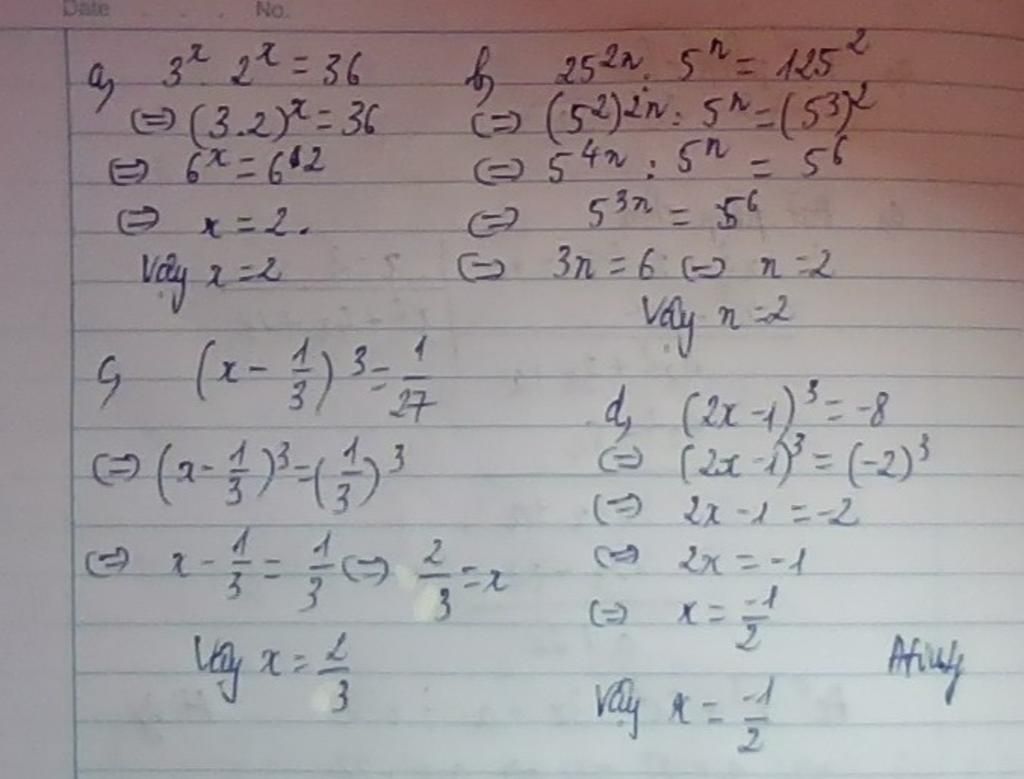 Date No.
a, 3^x 2^x = 36
<=> (3.2)^x = 36
<=> 6^x = 6^2
<=> x = 2.
Vậy x = 2
b, 25^2n : 5^n = 125^2
<=> (5^2)^2n : 5^n = (5^3)^2
<=> 5^4n : 5^n = 5^6
<=> 5^3n = 5^6
<=> 3n = 6 <=> n = 2
Vậy n = 2
c, (x - 1/3)^3 = 1/27
<=> (x - 1/3)^3 = (1/3)^3
<=> x - 1/3 = 1/3 <=> 2/3 = x
Vậy x = 2/3
d, (2x - 1)^3 = -8
<=> (2x - 1)^3 = (-2)^3
<=> 2x - 1 = -2
<=> 2x = -1
<=> x = -1/2
Vậy x = -1/2